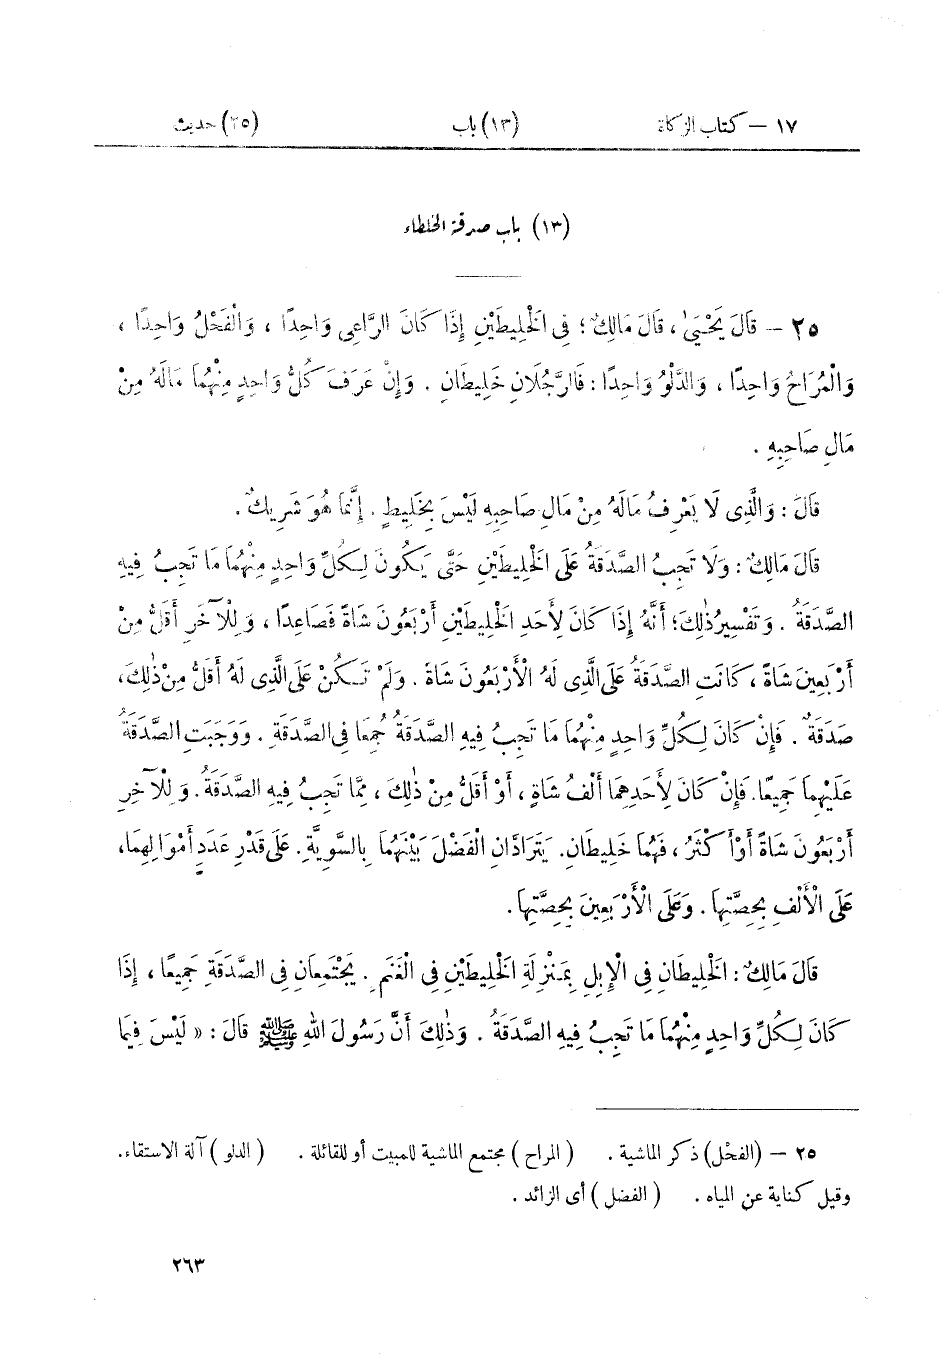 ١٧ – كتاب الزكاة (١٣) باب (٢٥) حديث
(١٣) باب صدقة الخلطاء
٢٥ – قَالَ يَحْيَىٰ، قَالَ مَالِكٌ؛ فِى الْخَلِيطَيْنِ إِذَا كَانَ الرَّاعِى وَاحِدًا، وَالْفَحْلُ وَاحِدًا،
وَالْمُرَاحُ وَاحِدًا، وَالدَّلْوُ وَاحِدًا: فَالرَّجُلَانِ خَلِيطَانِ. وَإِنْ عَرَفَ كُلُّ وَاحِدٍ مِنْهُمَا مَالَهُ مِنْ
مَالِ صَاحِبِهِ.
قَالَ: وَالَّذِى لَا يَعْرِفُ مَالَهُ مِنْ مَالِ صَاحِبِهِ لَيْسَ بِخَلِيطٍ. إِنَّمَا هُوَ شَرِيكٌ.
قَالَ مَالِكٌ: وَلَا تَجِبُ الصَّدَقَةُ عَلَى الْخَلِيطَيْنِ حَتَّى يَكُونَ لِكُلِّ وَاحِدٍ مِنْهُمَا مَا تَجِبُ فِيهِ
الصَّدَقَةُ. وَتَفْسِيرُ ذٰلِكَ؛ أَنَّهُ إِذَا كَانَ لِأَحَدِ الْخَلِيطَيْنِ أَرْبَعُونَ شَاةً فَصَاعِدًا، وَلِلْآخَرِ أَقَلُّ مِنْ
أَرْبَعِينَ شَاةً، كَانَتِ الصَّدَقَةُ عَلَى الَّذِى لَهُ الْأَرْبَعُونَ شَاةً. وَلَمْ تَكُنْ عَلَى الَّذِى لَهُ أَقَلُّ مِنْ ذٰلِكَ،
صَدَقَةٌ. فَإِنْ كَانَ لِكُلِّ وَاحِدٍ مِنْهُمَا مَا تَجِبُ فِيهِ الصَّدَقَةُ جُمِعَا فِى الصَّدَقَةِ. وَوَجَبَتِ الصَّدَقَةُ
عَلَيْهِمَا جَمِيعًا. فَإِنْ كَانَ لِأَحَدِهِمَا أَلْفُ شَاةٍ، أَوْ أَقَلُّ مِنْ ذٰلِكَ، مِمَّا تَجِبُ فِيهِ الصَّدَقَةُ. وَلِلْآخَرِ
أَرْبَعُونَ شَاةً أَوْ أَكْثَرُ، فَهُمَا خَلِيطَانِ. يَتَرَادَّانِ الْفَضْلَ بَيْنَهُمَا بِالسَّوِيَّةِ. عَلَى قَدْرِ عَدَدِ أَمْوَالِهِمَا،
عَلَى الْأَلْفِ بِحِصَّتِهَا. وَعَلَى الْأَرْبَعِينَ بِحِصَّتِهَا.
قَالَ مَالِكٌ: الْخَلِيطَانِ فِى الْإِبِلِ بِمَنْزِلَةِ الْخَلِيطَيْنِ فِى الْغَنَمِ. يَجْتَمِعَانِ فِى الصَّدَقَةِ جَمِيعًا، إِذَا
كَانَ لِكُلِّ وَاحِدٍ مِنْهُمَا مَا تَجِبُ فِيهِ الصَّدَقَةُ. وَذٰلِكَ أَنَّ رَسُولَ اللهِ ﷺ قَالَ: « لَيْسَ فِيمَا
٢٥ – (الفحْل) ذكر الماشية. (المراح) مجتمع الماشية للمبيت أو للقائلة. (الدلو) آلة الاستقاء.
وقيل كناية عن المياه. (الفضل) أى الزائد.
٢٦٣